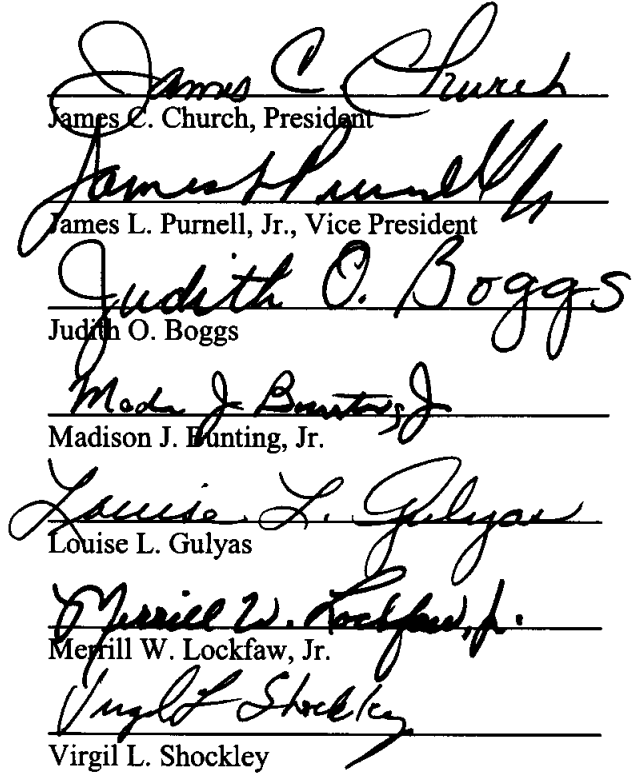 James C Church
James C. Church, President
James L Purnell Jr
James L. Purnell, Jr., Vice President
Judith O. Boggs
Judith O. Boggs
Madison J Bunting, Jr
Madison J. Bunting, Jr.
Louise L. Gulyas
Louise L. Gulyas
Merrill W. Lockfaw, Jr.
Merrill W. Lockfaw, Jr.
Virgil L Shockley
Virgil L. Shockley